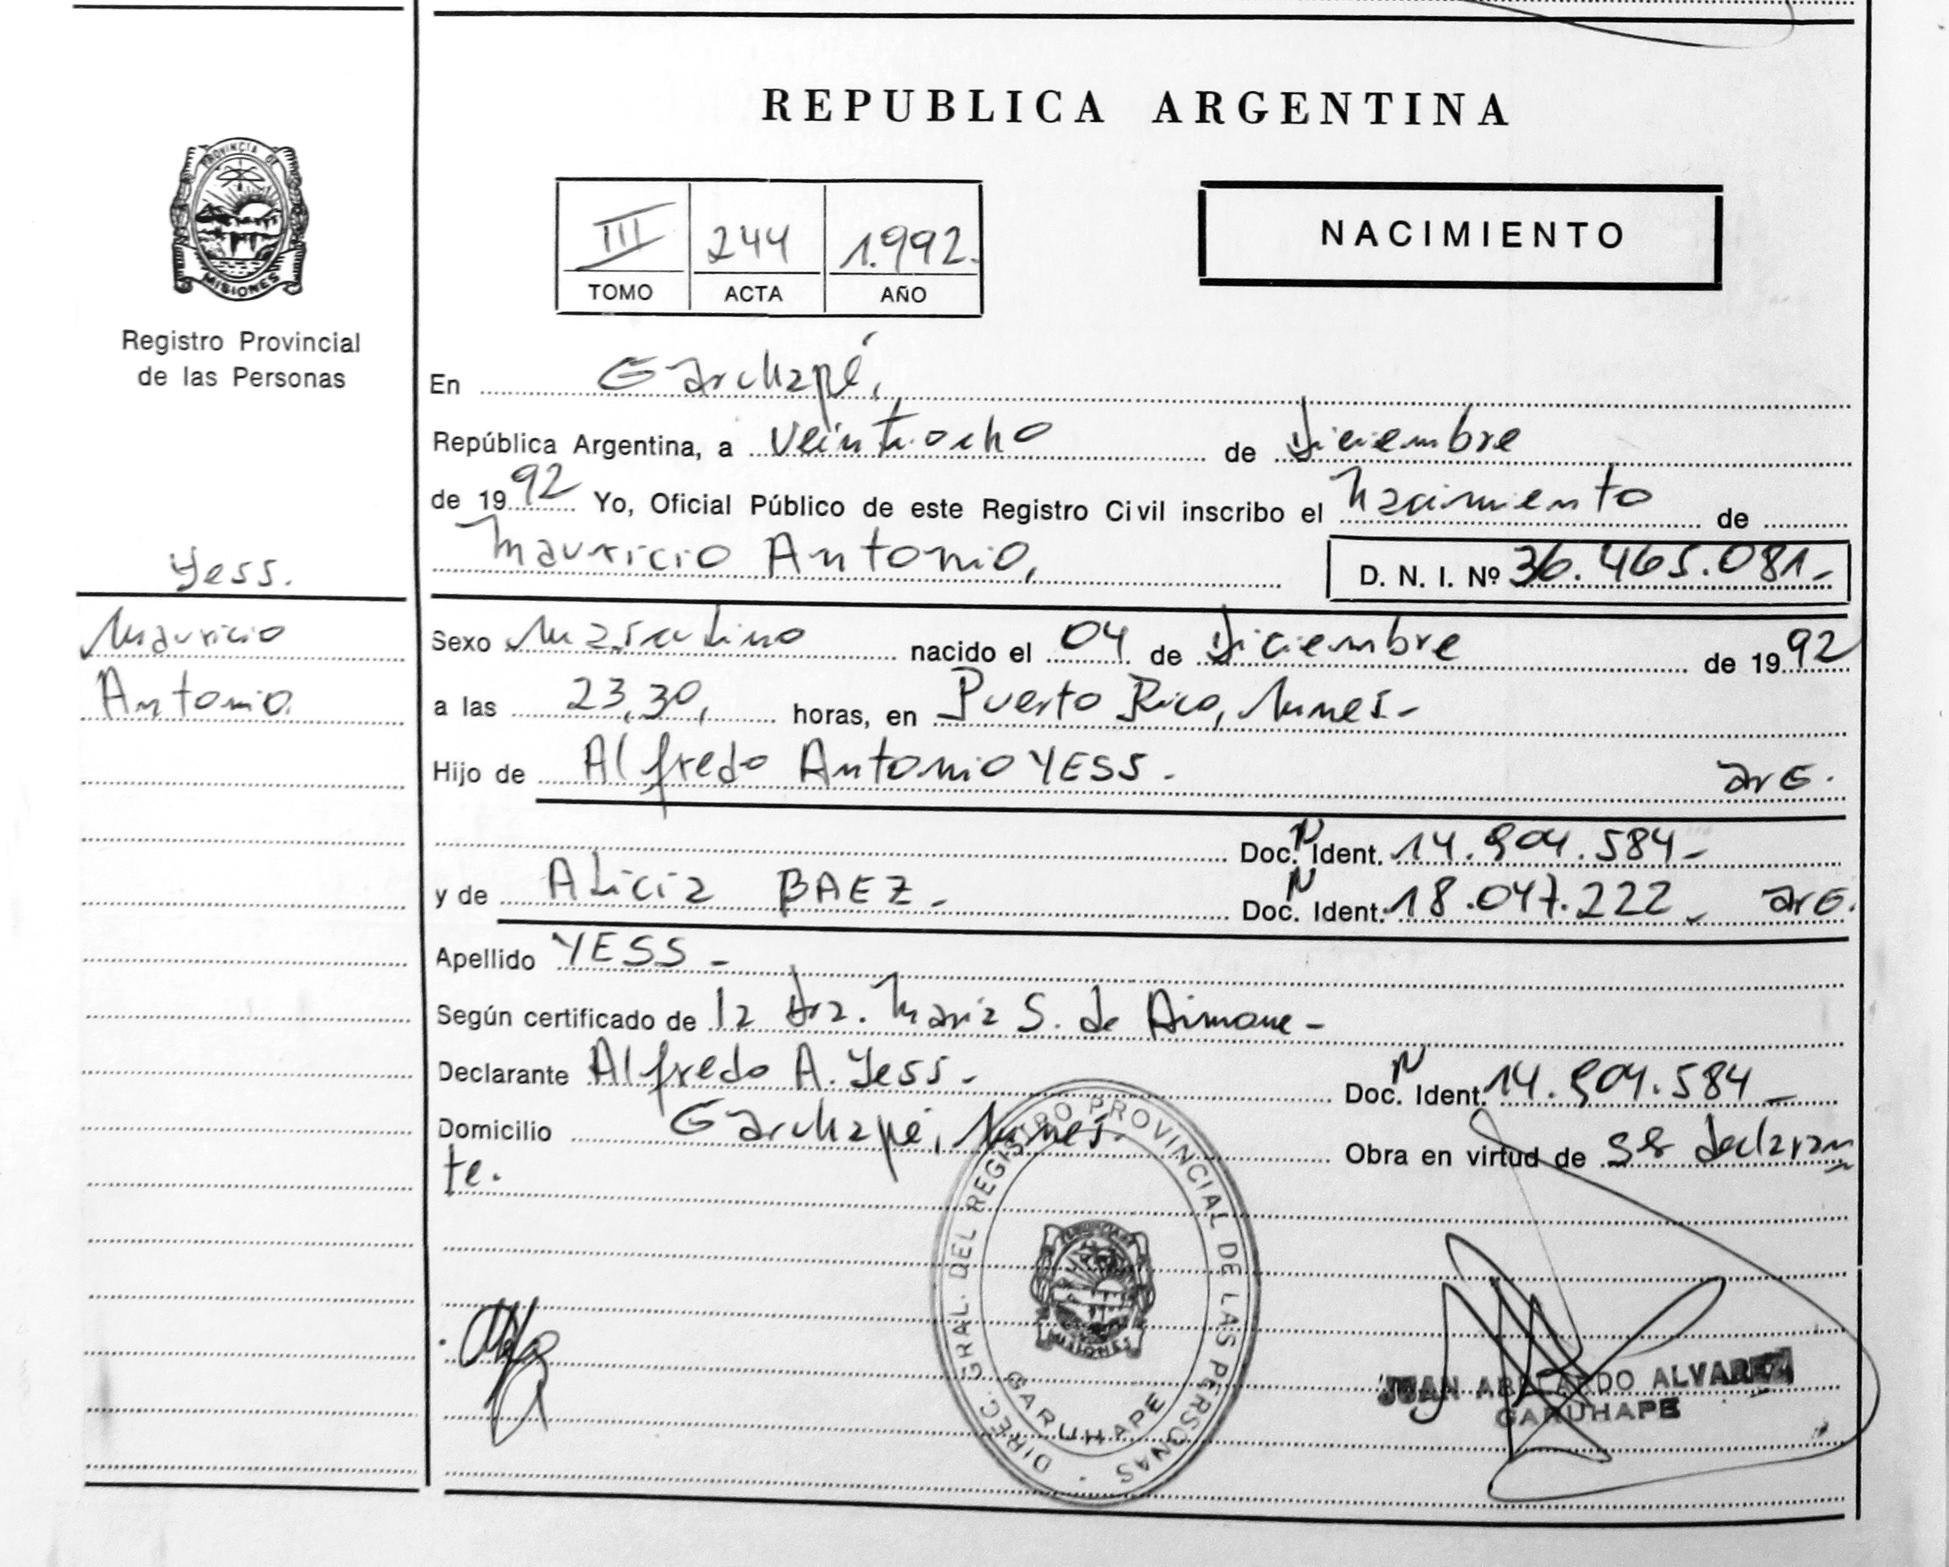 REPUBLICA ARGENTINA
PROVINCIA DE
MISIONES
Registro Provincial
de las Personas
III 244 1.992.
TOMO ACTA AÑO
NACIMIENTO
En Garuhapé,
República Argentina, a Veintiocho de Diciembre
de 1992 Yo, Oficial Público de este Registro Civil inscribo el Nacimiento de
Mauricio Antonio, D. N. I. Nº 36.465.081-
Yess.
Mauricio
Antonio
Sexo Masculino nacido el 04 de Diciembre de 1992
a las 23,30, horas, en Puerto Rico, Mnes.-
Hijo de Alfredo Antonio YESS. arG.
Doc. N Ident. 14.904.584-
y de Alicia BAEZ - Doc. N Ident. 18.047.222 - arG.
Apellido YESS -
Según certificado de la Dra. María S. de Aimone -
Declarante Alfredo A. Yess - Doc. N Ident. 14.904.584 -
Domicilio Garuhapé, Mnes. Obra en virtud de ser declaran
te.
DIREC. GRAL. DEL REGISTRO PROVINCIAL DE LAS PERSONAS
MISIONES
GARUHAPE
JUAN ABELARDO ALVAREZ
GARUHAPE